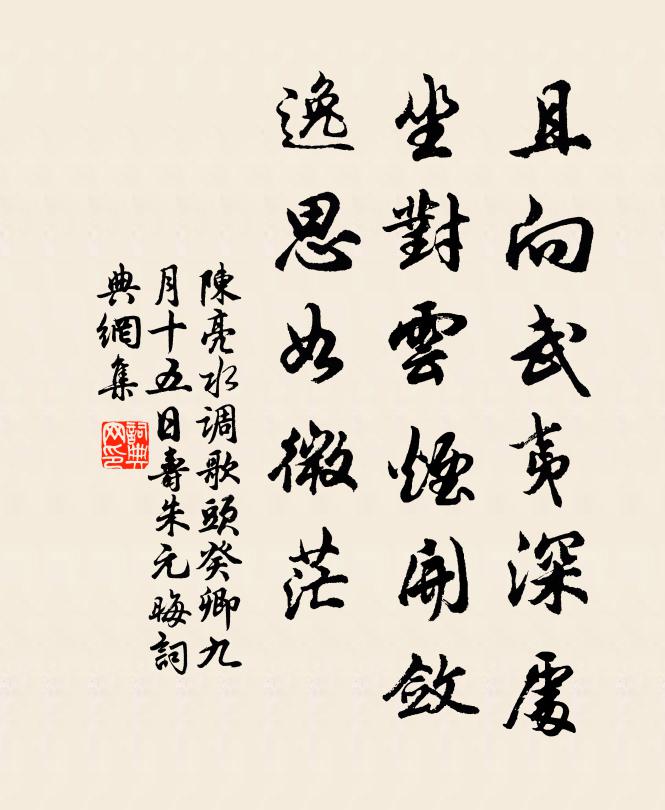 且向武夷深處
坐對雲煙開斂
逸思如微茫
陳亮水调歌頭癸卿九
月十五日壽朱元晦詞
典網集
詞典
网印